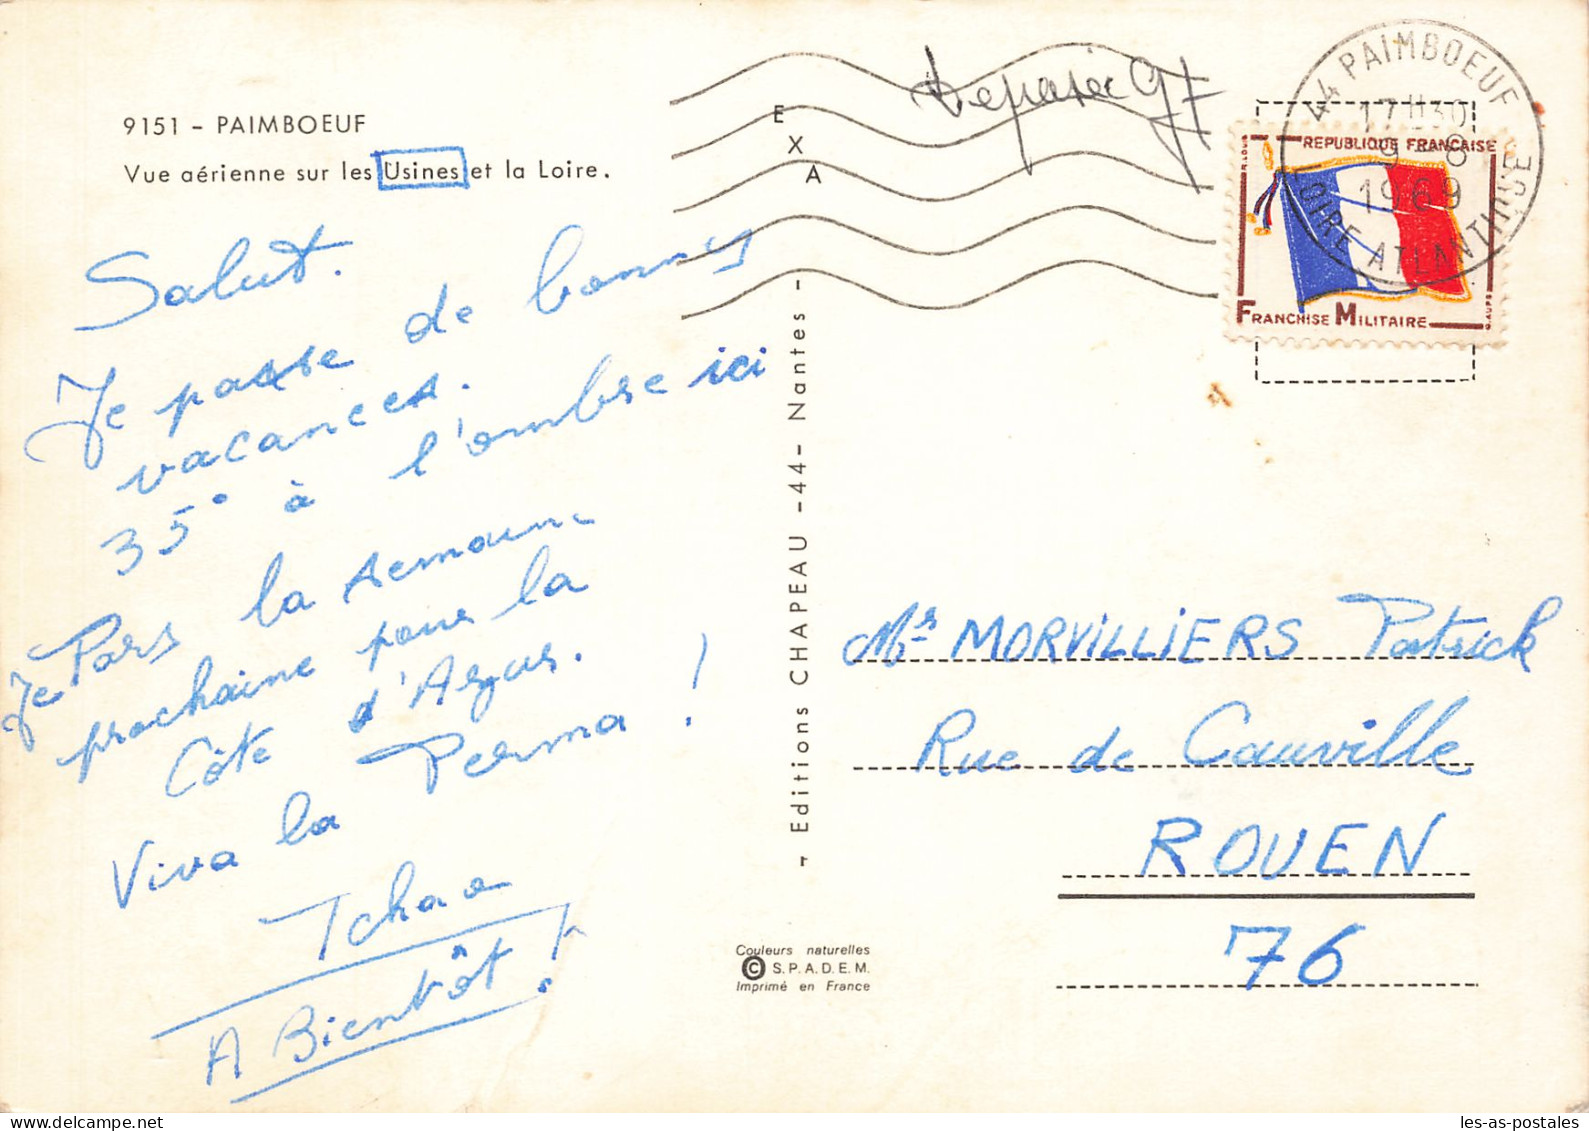 9151 - PAIMBOEUF
Vue aérienne sur les Usines et la Loire.
Salut.
Je passe de bonnes
vacances.
35° à l'ombre ici
Je Pars la semaine
prochaine pour la
Côte d'Azur.
Viva la Perma !
Tchao
A Bientôt !
E
X
A
- Editions CHAPEAU -44- Nantes -
Couleurs naturelles
© S.P.A.D.E.M.
Imprimé en France
44 PAIMBOEUF
17H30
9-8
1969
LOIRE ATLANTIQUE
REPUBLIQUE FRANÇAISE
FRANCHISE MILITAIRE
Mr MORVILLIERS Patrick
Rue de Cauville
ROUEN
76
les-as-postales